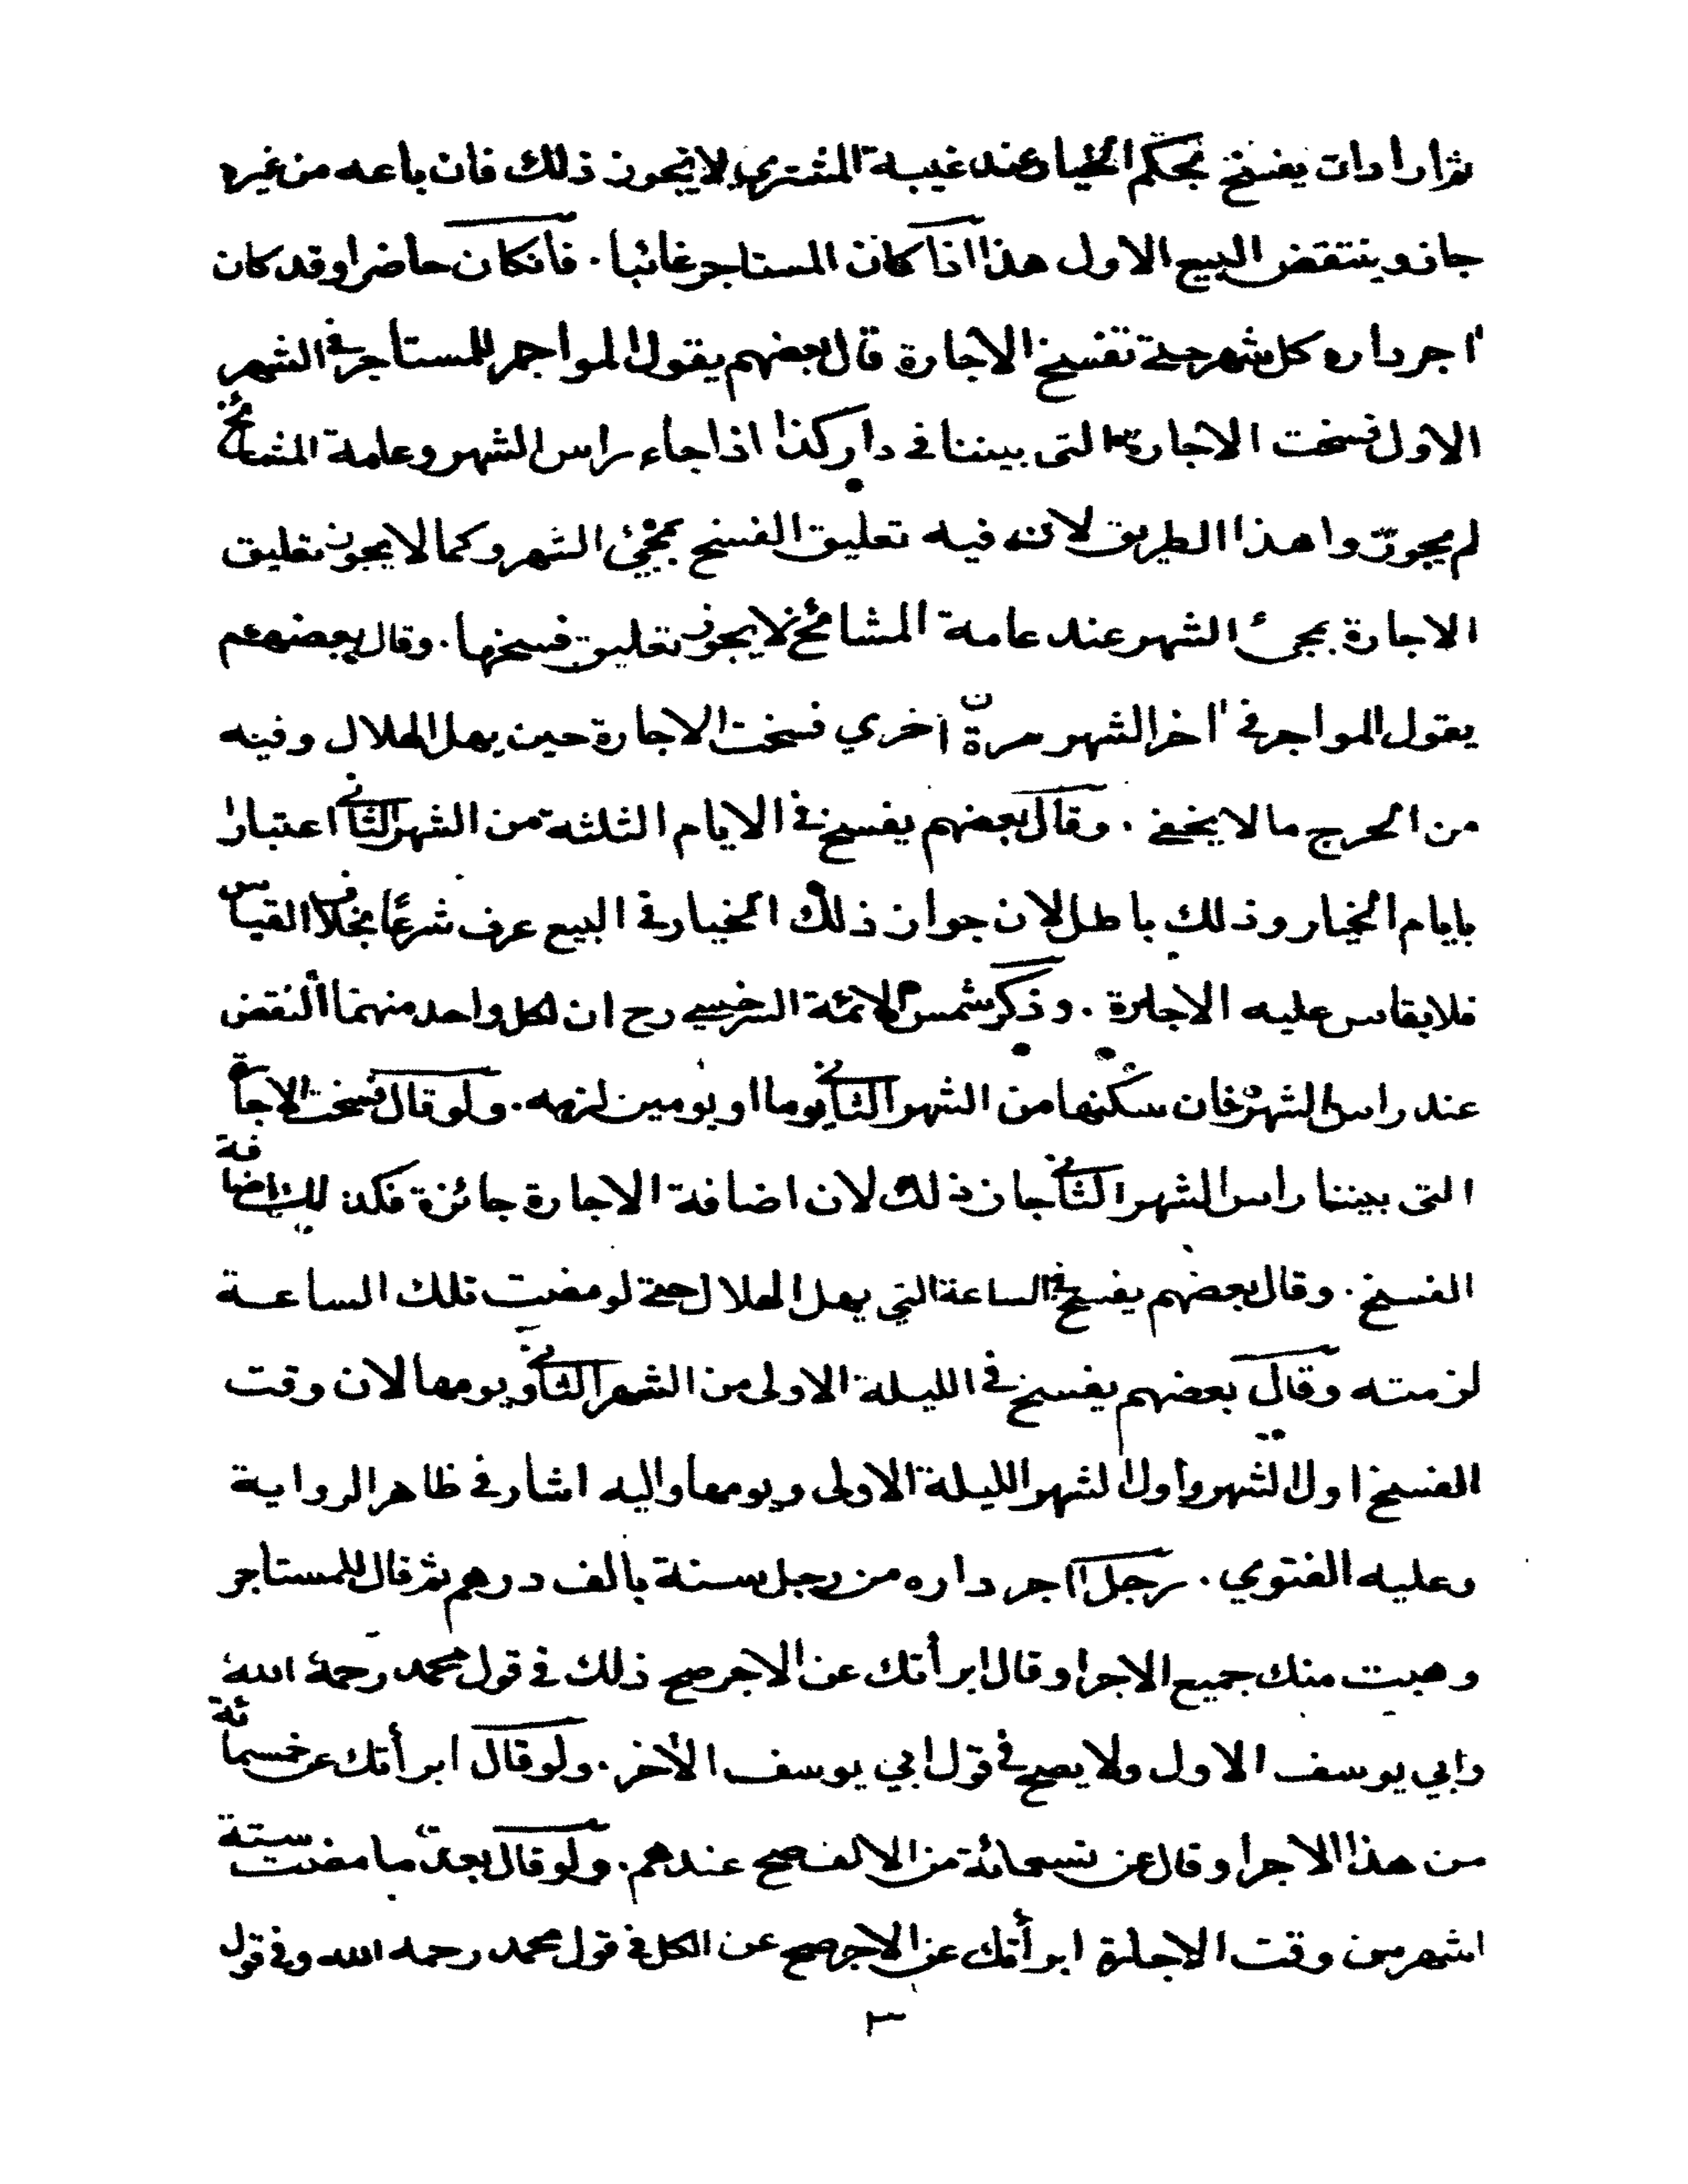 ثم اراد ان يفسخ بحكم الخيار عند غيبة المشتري لا يجوز ذلك فان باعه من غيره
جاز وينتقض البيع الاول هذا اذا كان المستاجر غائبا . فانكان حاضرا وقد كان
آجر داره كل شهر حتى تفسخ الاجارة قال بعضهم يقول المواجر للمستأجر في الشهر
الاول فسخت الاجارة التى بيننا في دار كذا اذا جاء راس الشهر وعامة المشائخ
لم يجوزوا هذا الطريق لانه فيه تعليق الفسخ بمجئ الشهر وكما لا يجوز تعليق
الاجارة بمجئ الشهر عند عامة المشائخ لا يجوز تعليق فسخها . وقال بعضهم
يقول المواجر في آخر الشهر مرة اخري فسخت الاجارة حين يهل الهلال وفيه
من الحرج ما لا يخفى . وقال بعضهم يفسخ في الايام الثلثة من الشهر الثاني اعتبارا
بايام الخيار وذلك باطل لان جواز ذلك الخيار في البيع عرف شرعًا بخلاف القياس
فلا يقاس عليه الاجارة . وذكر شمس الائمة السرخسي رح ان لكل واحد منهما النقض
عند راس الشهر فان سكنها من الشهر الثاني يوما او يومين لزمه . ولو قال فسخت الاجارة
التى بيننا راس الشهر الثاني جاز ذلك لان اضافة الاجارة جائزة فكذلك اضافة
الفسخ . وقال بعضهم يفسخ في الساعة التي يهل الهلال حتى لو مضت تلك الساعة
لزمته وقال بعضهم يفسخ في الليلة الاولى من الشهر الثاني ويومها لان وقت
الفسخ اول الشهر واول الشهر الليلة الاولى ويومها واليه اشار في ظاهر الرواية
وعليه الفتوي . رجل آجر داره من رجل سنة بالف درهم ثم قال للمستاجر
وهبت منك جميع الاجر او قال ابرأتك عن الاجر صح ذلك في قول محمد رحمة الله
وابي يوسف الاول ولا يصح في قول ابي يوسف الآخر . ولو قال ابرأتك عن خمسمائة
من هذا الاجر او قال عن تسعمائة من الالف صح عندهم . ولو قال بعد ما مضت ستة
اشهر من وقت الاجارة ابرأتك عن الاجر صح عن الكل في قول محمد رحمه الله وفي قول